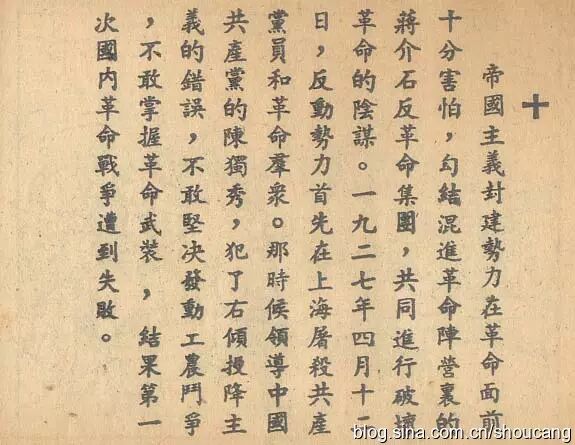 十
帝國主義封建勢力在革命面前
十分害怕，勾結混進革命陣營裏的
蔣介石反革命集團，共同進行破壞
革命的陰謀。一九二七年四月十二
日，反動勢力首先在上海屠殺共產
黨員和革命羣衆。那時候領導中國
共產黨的陳獨秀，犯了右傾投降主
義的錯誤，不敢堅决發動工農鬥爭
，不敢掌握革命武裝，結果第一
次國內革命戰爭遭到失敗。
blog.sina.com.cn/shoucang